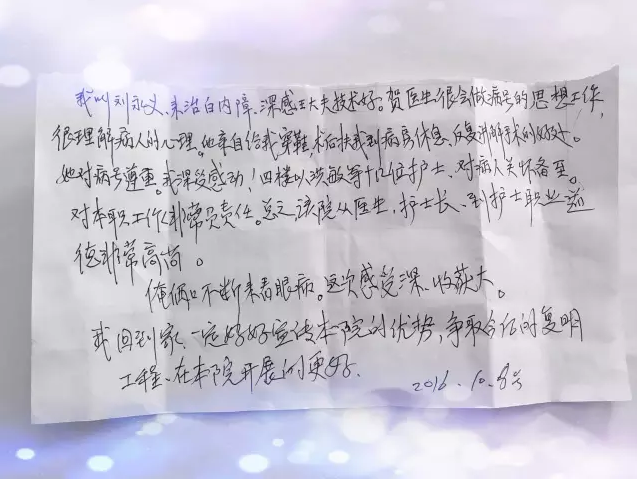 我叫刘永义、来治白内障、深感王大夫技术好。贺医生很会做病号的思想工作,
很理解病人的心理。她亲自给我穿鞋,术后扶我到病房休息,反复讲解手术的好处。
她对病号尊重。我深受感动!四楼以洪敏等十几位护士、对病人关怀备至。
对本职工作非常负责任。总之该院从医生,护士长、到护士职业道
德非常高尚。
俺俩口不断来看眼病。这次感受深、收获大。
我回到家、一定好好宣传本院的优势,争取今后的复明
工程、在本院开展的更好.
2016.10.8号